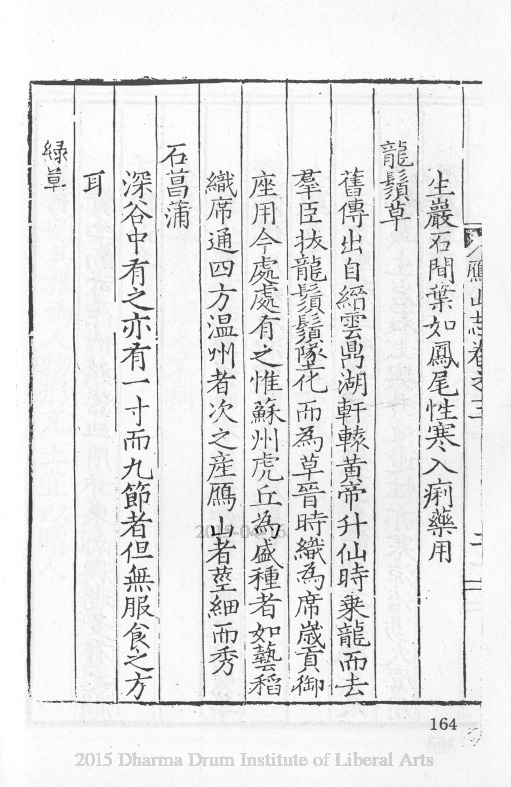 鴈山志卷之三
生巖石間葉如鳳尾性寒入痢藥用
龍鬚草
舊傳出自縉雲鼎湖軒轅黃帝升仙時乘龍而去
羣臣抜龍鬚鬚墜花而為草晉時織為席歲貢御
座用今處處有之惟蘇州虎丘為盛種者如藝稻
織席通四方温州者次之産鴈山者莖細而秀
石菖蒲
深谷中有之亦有一寸而九節者但無服食之方
耳
緑草
164
2015 Dharma Drum Institute of Liberal Arts